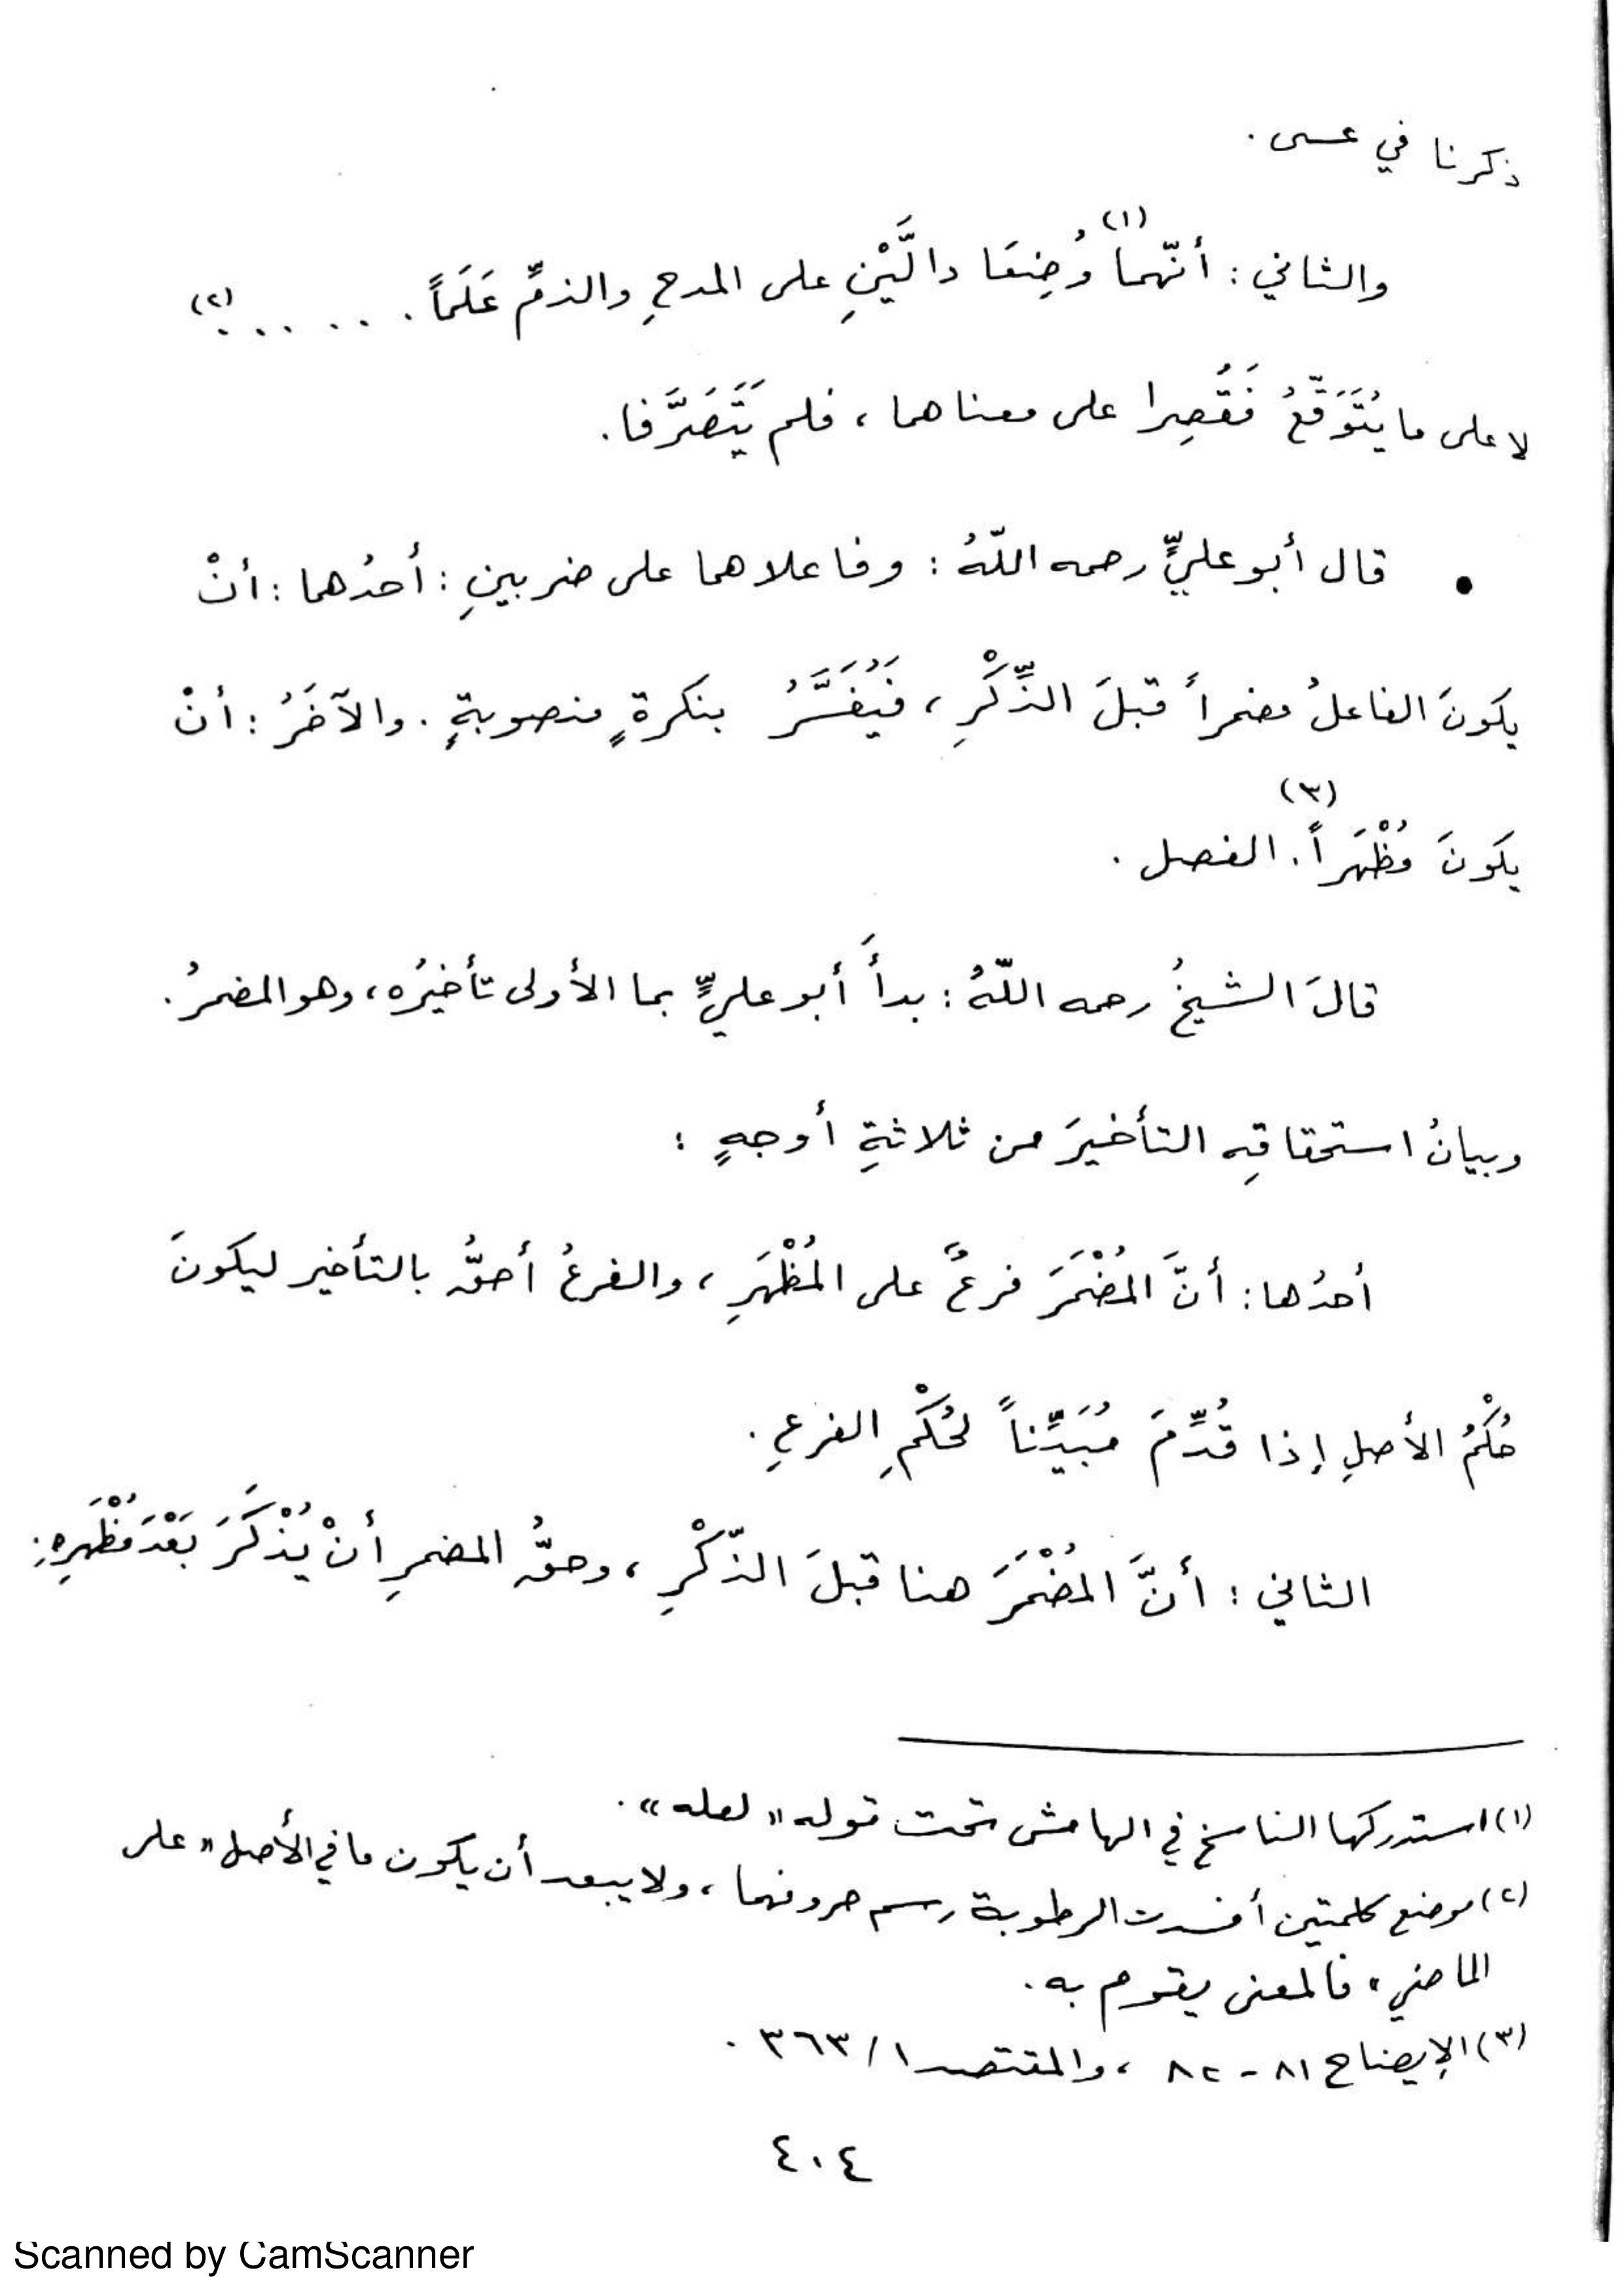 ذكرنا في عسى .
والثاني : أنّهما (١) وُضِعَا دالَّيْنِ على المدحِ والذمِّ عَلَماً . . . . . . . (٢)
لا على ما يُتَوَقّعُ فَقُصِرا على معناهما ، فلم يَتَصَرَّفا .
• قال أبو عليٍّ رحمه اللّهُ : وفاعلاهما على ضربينِ : أحدُهما : أنْ
يكونَ الفاعلُ مضمراً قبلَ الذِّكْرِ ، فَيُفَسَّرُ بنكرةٍ منصوبةٍ . والآخَرُ : أنْ
يكونَ مُظْهَراً . (٣) الفصل .
قالَ الشيخُ رحمه اللّهُ : بدأَ أبو عليٍّ بما الأولى تأخيرُه ، وهو المضمرُ .
وبيانُ استحقاقِه التأخيرَ من ثلاثةِ أوجهٍ :
أحدُها : أنَّ المُضْمَرَ فرعٌ على المُظْهَرِ ، والفرعُ أحقُّ بالتأخير ليكونَ
حُكْمُ الأصلِ إذا قُدِّمَ مُبَيِّناً لحُكْمِ الفرعِ .
الثاني : أنَّ المُضْمَرَ هنا قبلَ الذّكْرِ ، وحقُّ المضمرِ أنْ يُذْكَرَ بَعْدَ مُظْهَرِهِ .
(١) استدركها الناسخ في الهامش تحت قوله « لعله » .
(٢) موضع كلمتين أفسدت الرطوبة رسم حروفهما ، ولا يبعد أن يكون ما في الأصل « على
الماضي » فالمعنى يقوم به .
(٣) الإيضاح ٨١ - ٨٢ ، والمقتصد ١ / ٣٦٣ .
٤٠٤
Scanned by CamScanner